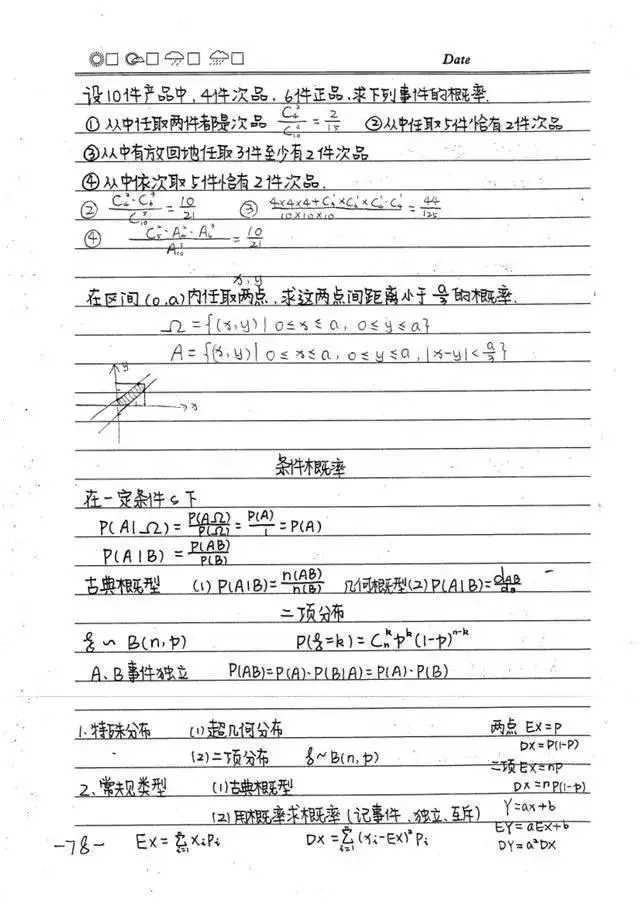 Date
设10件产品中,4件次品,6件正品,求下列事件的概率.
① 从中任取两件都是次品 C₄²/C₁₀² = 2/15 ②从中任取5件恰有2件次品
③从中有放回地任取3件至少有2件次品
④从中依次取5件恰有2件次品.
② C₄²·C₆³/C₁₀⁵ = 10/21 ③ (4×4×4+C₃²×C₄¹×C₄¹·C₆¹)/(10×10×10) = 44/125
④ C₅²·A₄²·A₆³/A₁₀⁵ = 10/21
x,y
在区间(0,a)内任取两点,求这两点间距离小于 a/3 的概率.
Ω={(x,y)|0≤x≤a, 0≤y≤a}
A={(x,y)|0≤x≤a, 0≤y≤a, |x-y|<a/3}
y
x
条件概率
在一定条件c下
P(A|Ω)=P(AΩ)/P(Ω)=P(A)/1=P(A)
P(A|B)=P(AB)/P(B)
古典概型 (1) P(A|B)=n(AB)/n(B) 几何概型(2) P(A|B)=d_AB/d_B
二项分布
ξ~B(n,p) P(ξ=k)=Cₙᵏpᵏ(1-p)ⁿ⁻ᵏ
A、B事件独立 P(AB)=P(A)·P(B|A)=P(A)·P(B)
1.特殊分布 (1)超几何分布 两点 EX=p
DX=P(1-P)
(2)二项分布 ξ~B(n,p) 二项EX=np
2、常规类型 (1)古典概型 DX=nP(1-p)
(2)用概率求概率(记事件、独立、互斥) Y=ax+b
EY=aEX+b
-78- EX=∑ᵢ₌₁ⁿxᵢPᵢ DX=∑ᵢ₌₁ⁿ(xᵢ-EX)²Pᵢ DY=a²DX